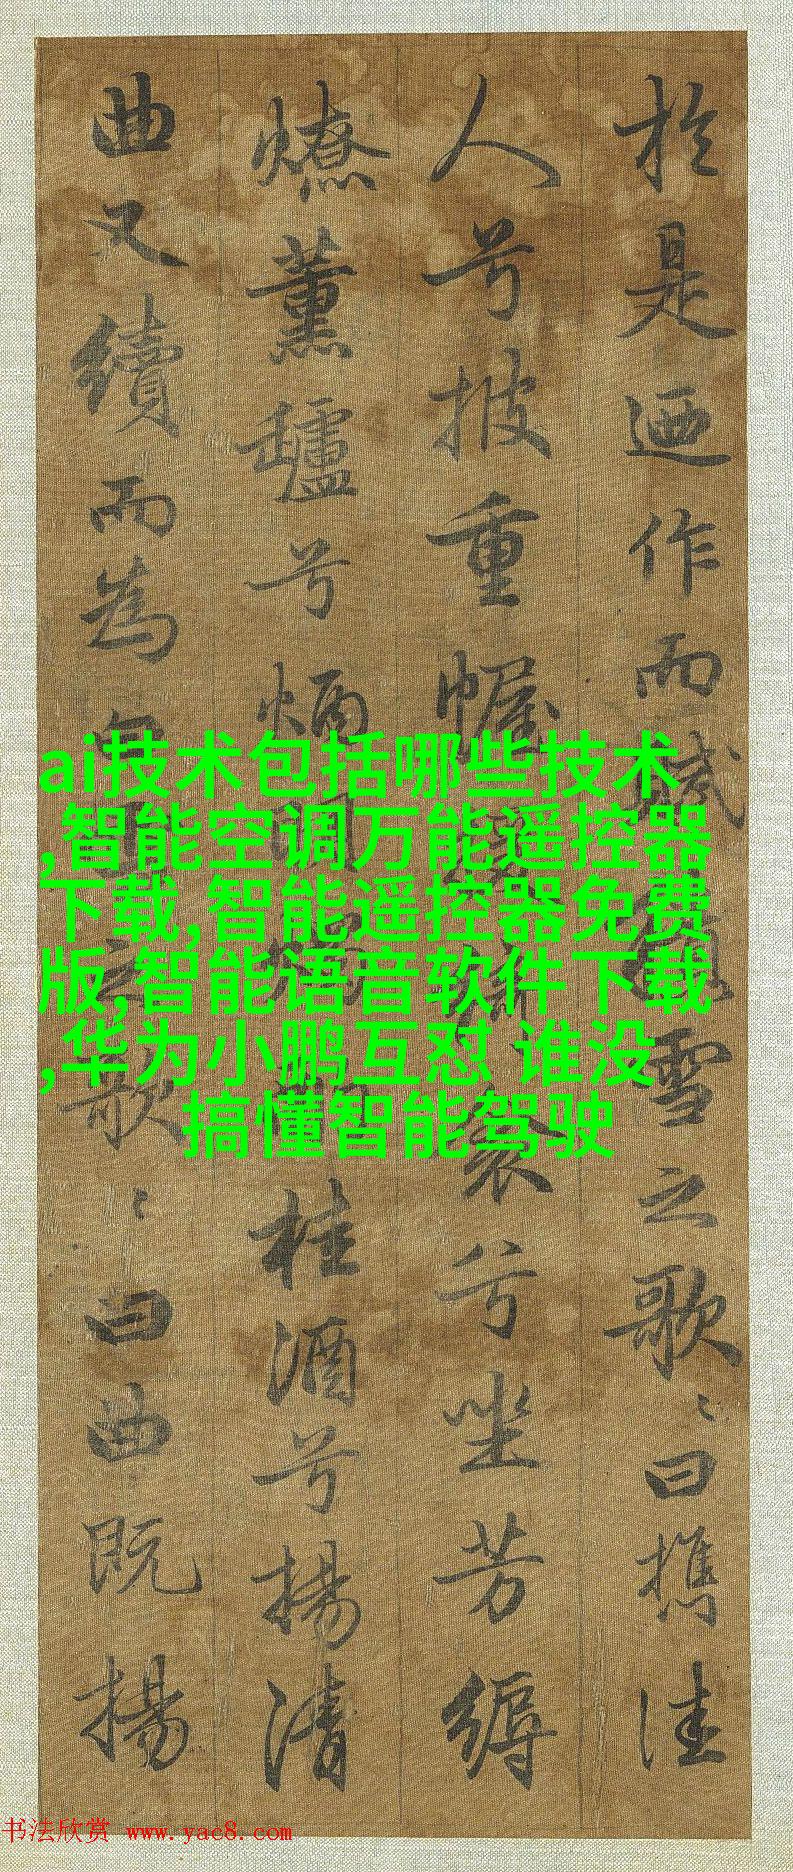 於是迺作而賦雪之歌〻曰攜佳
人兮披重幄衾兮坐芳縟
燎薰兮炳桂酒兮揚清
曲又續而為歌〻曰曲既揚
ai技术包括哪些技术
,智能空调万能遥控器
下载,智能遥控器免费
版,智能语音软件下载
,华为小鹏互怼 谁没
搞懂智能驾驶
书法欣赏 www.yac8.com